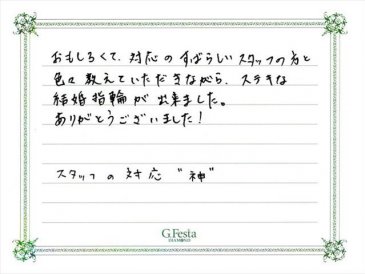 おもしろくて、対応のすばらしいスタッフの方と
色々教えていただきながら、ステキな
結婚指輪が出来ました。
ありがとうございました！
スタッフの対応 "神"
G.Festa
DIAMOND